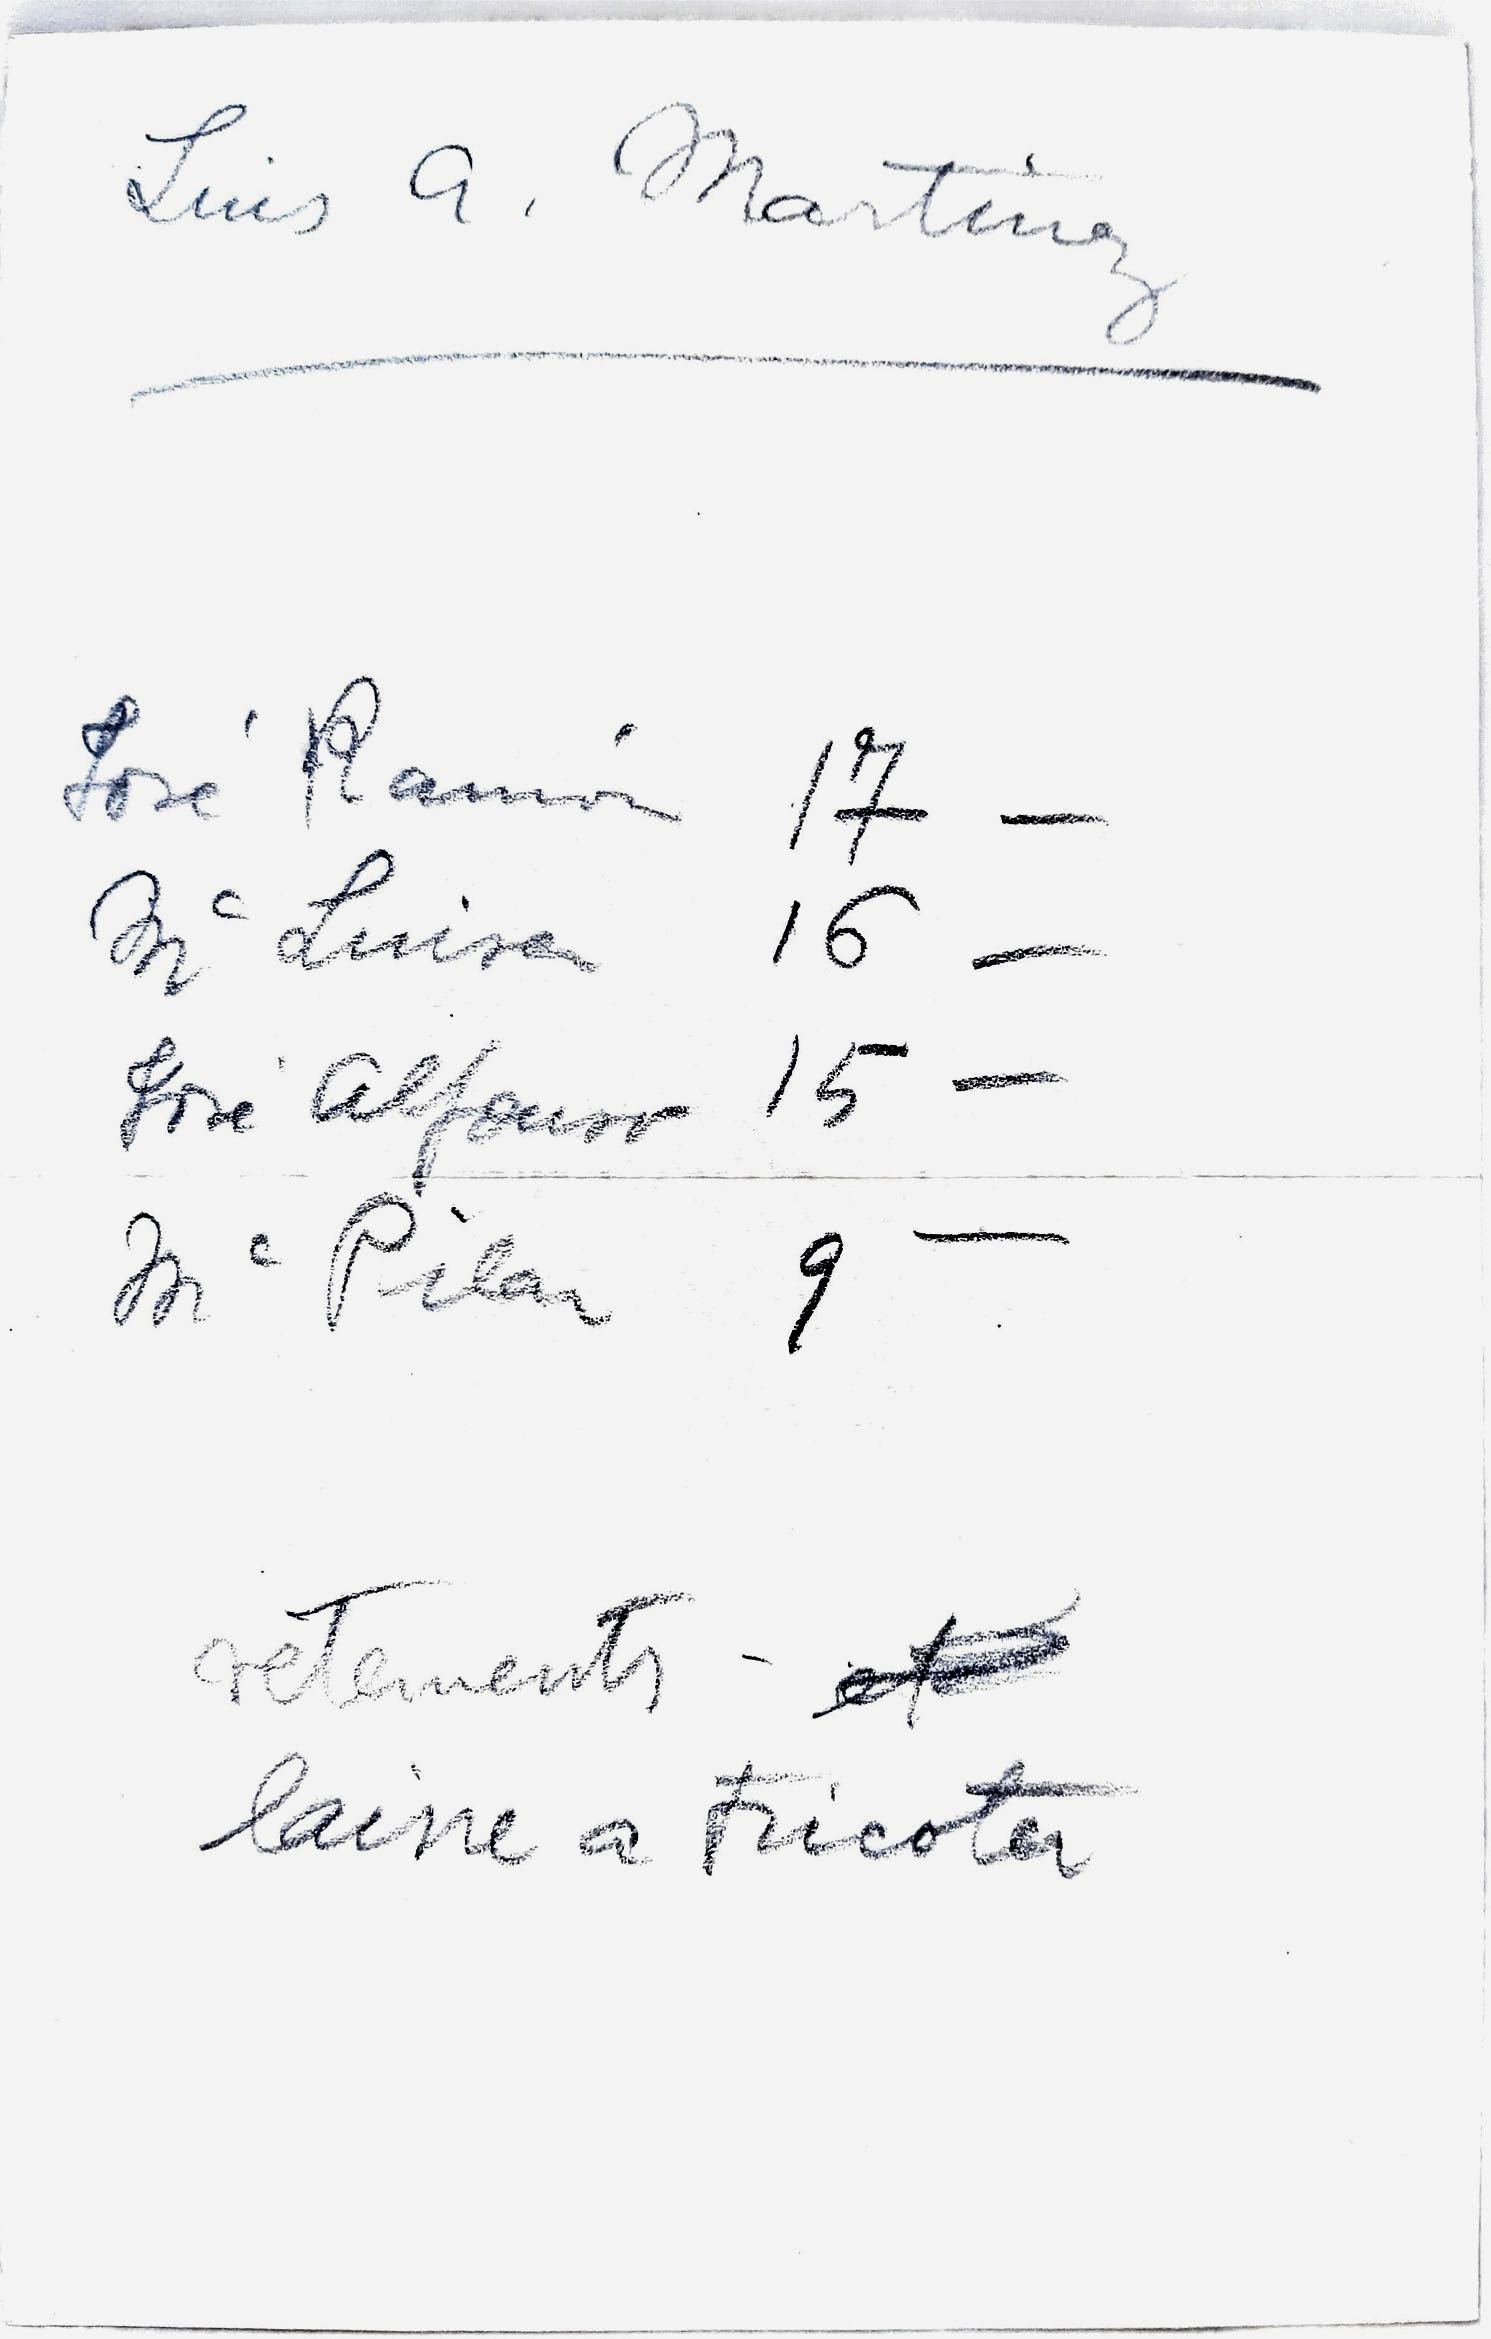 Luis A. Martinez
José Ramón 17 —
Mª Luisa 16 —
José Alfonso 15 —
Mª Pilar 9 —
vetements -
laine a tricoter